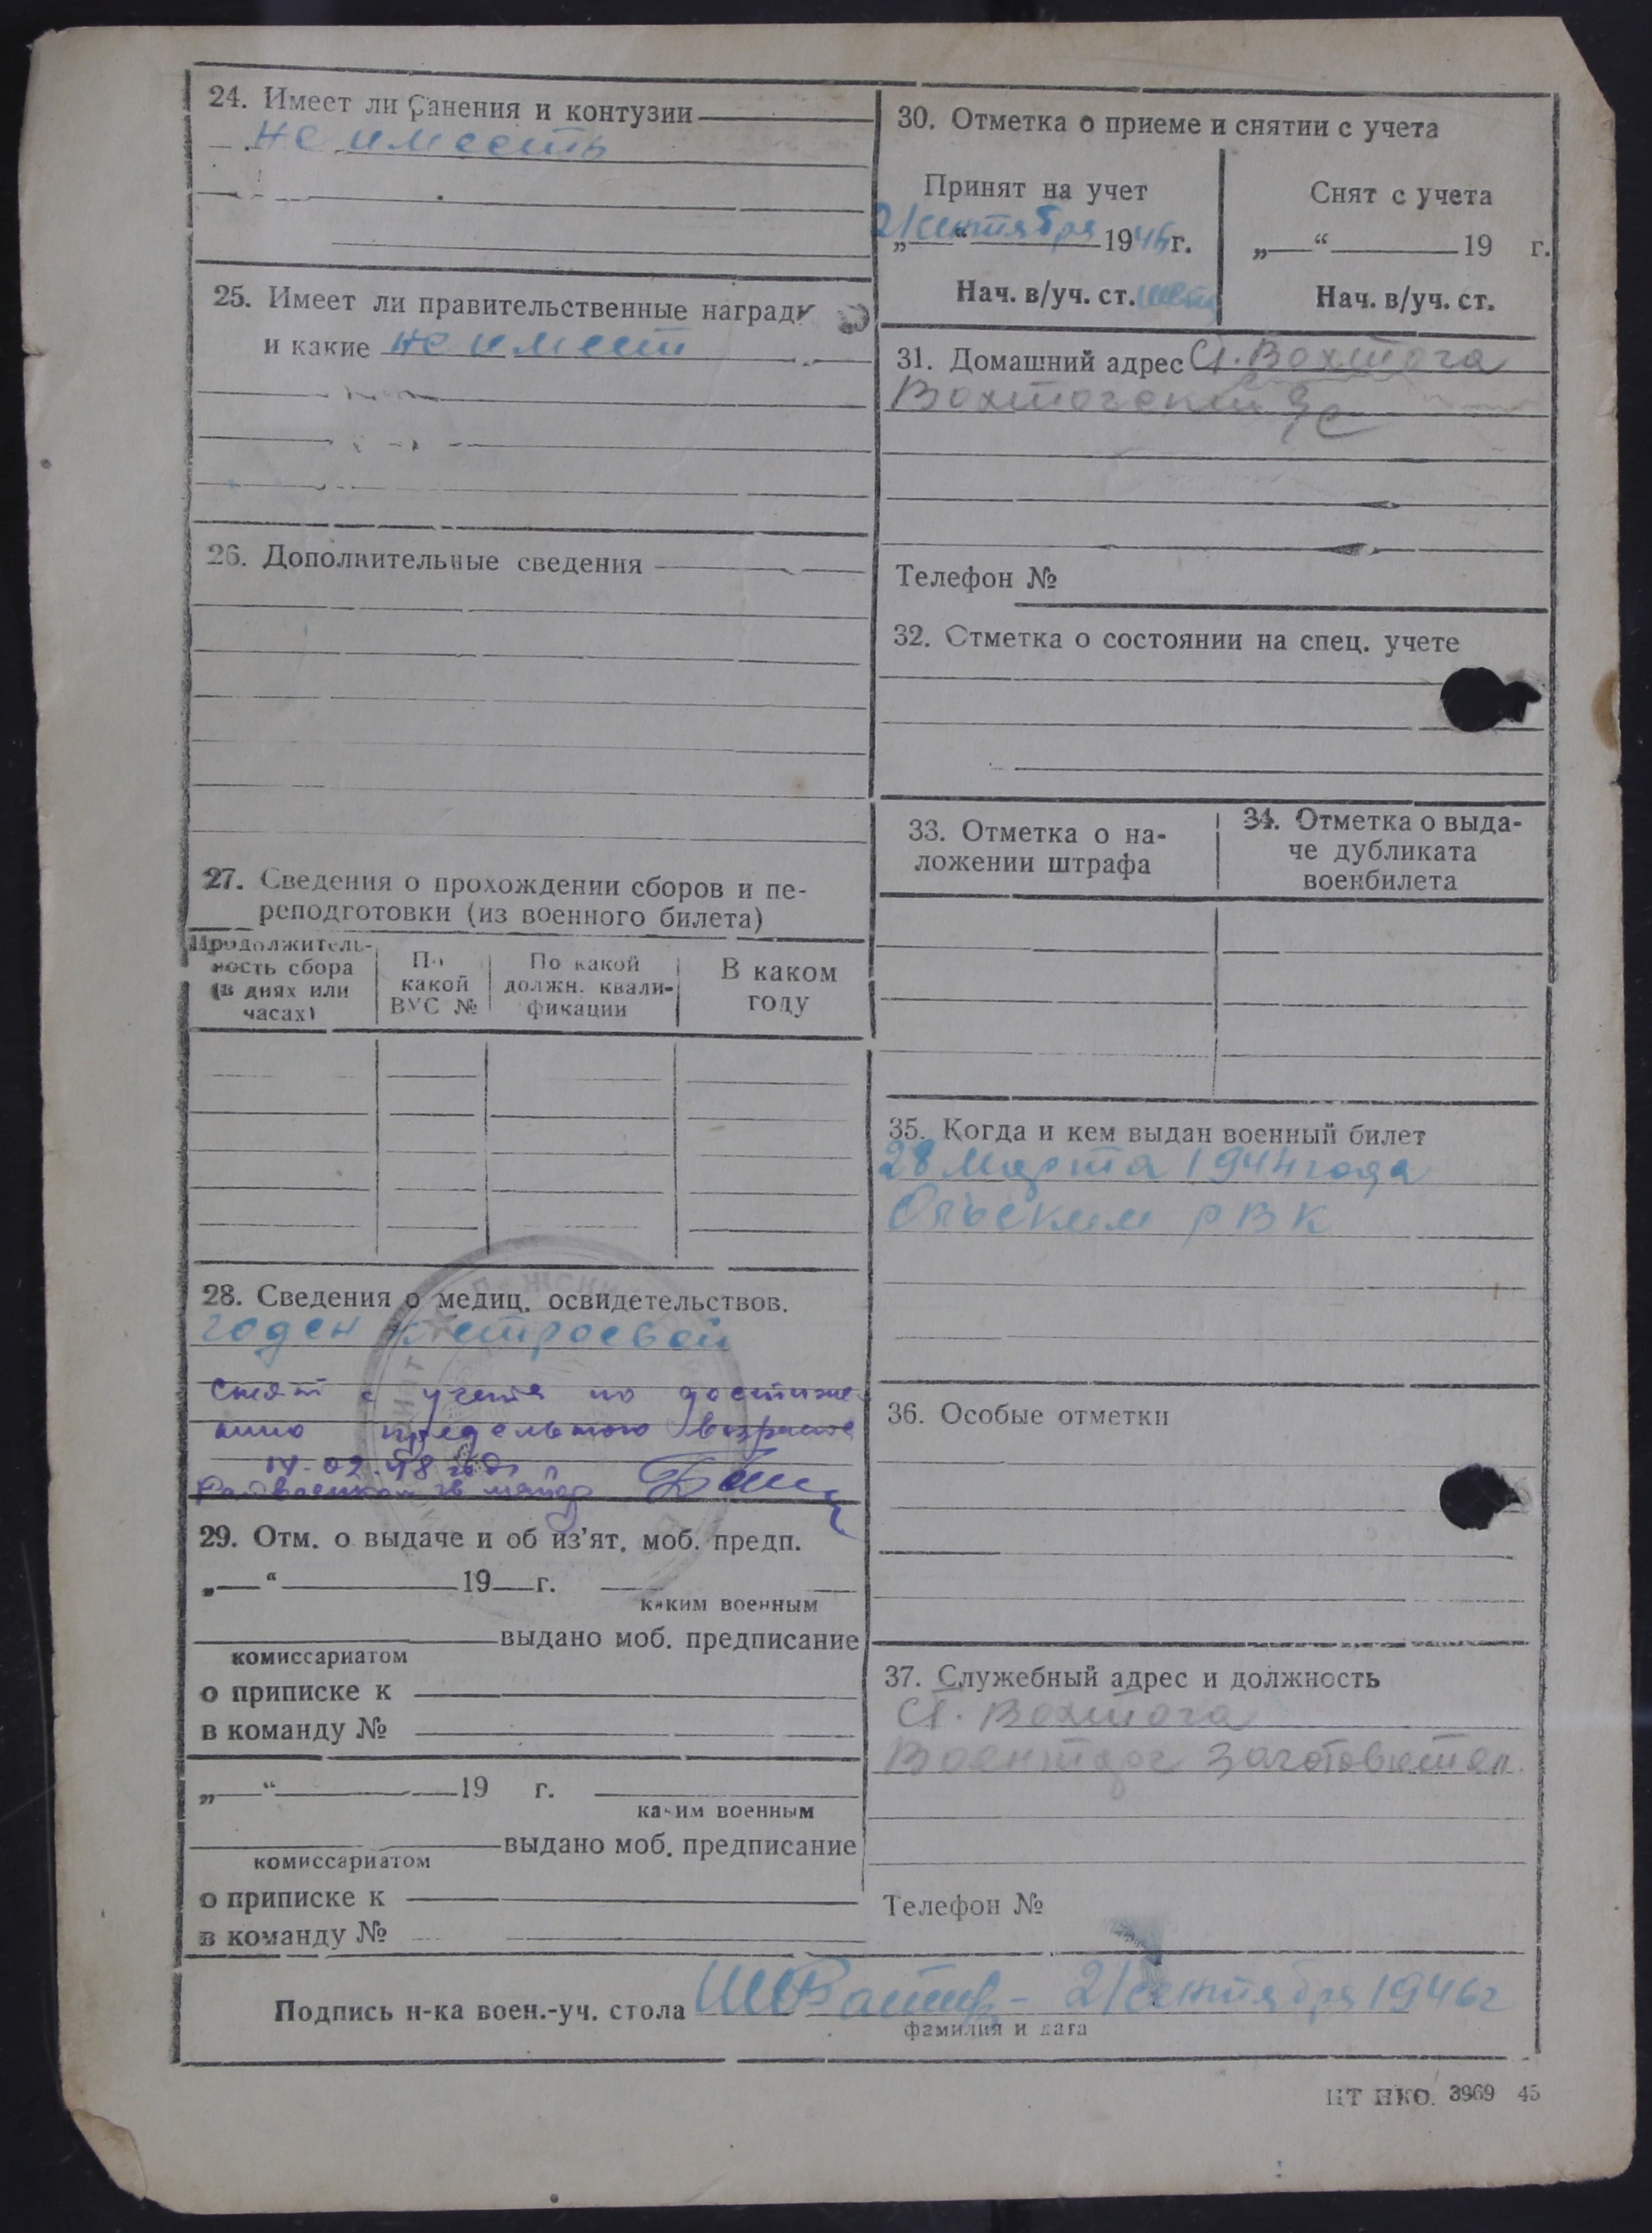 24. Имеет ли ранения и контузии
не имееть
25. Имеет ли правительственные награды
и какие не имеет
26. Дополнительные сведения
27. Сведения о прохождении сборов и пе-
реподготовки (из военного билета)
Продолжитель-
ность сбора
(в днях или
часах)
По
какой
ВУС №
По какой
должн. квали-
фикации
В каком
году
28. Сведения о медиц. освидетельствов.
годен к строевой
Снят с учета по достиже
нию предельного возраста
14.02.48 года
29. Отм. о выдаче и об из'ят. моб. предп.
„ “ 19 г.
каким военным
выдано моб. предписание
комиссариатом
о приписке к
в команду №
„ “ 19 г.
каким военным
выдано моб. предписание
комиссариатом
о приписке к
в команду №
30. Отметка о приеме и снятии с учета
Принят на учет
„21“ сентября 1946 г.
Нач. в/уч. ст.
Снят с учета
„ “ 19 г.
Нач. в/уч. ст.
31. Домашний адрес Ст. Вохтога
Вохтогский
Телефон №
32. Отметка о состоянии на спец. учете
33. Отметка о на-
ложении штрафа
34. Отметка о выда-
че дубликата
военбилета
35. Когда и кем выдан военный билет
28 Марта 1944 года
РВК
36. Особые отметки
37. Служебный адрес и должность
Ст. Вохтога
Военторг заготовител.
Телефон №
Подпись н-ка воен.-уч. стола 21 сентября 1946 г
фамилия и дата
ЦТ НКО. 3969 45